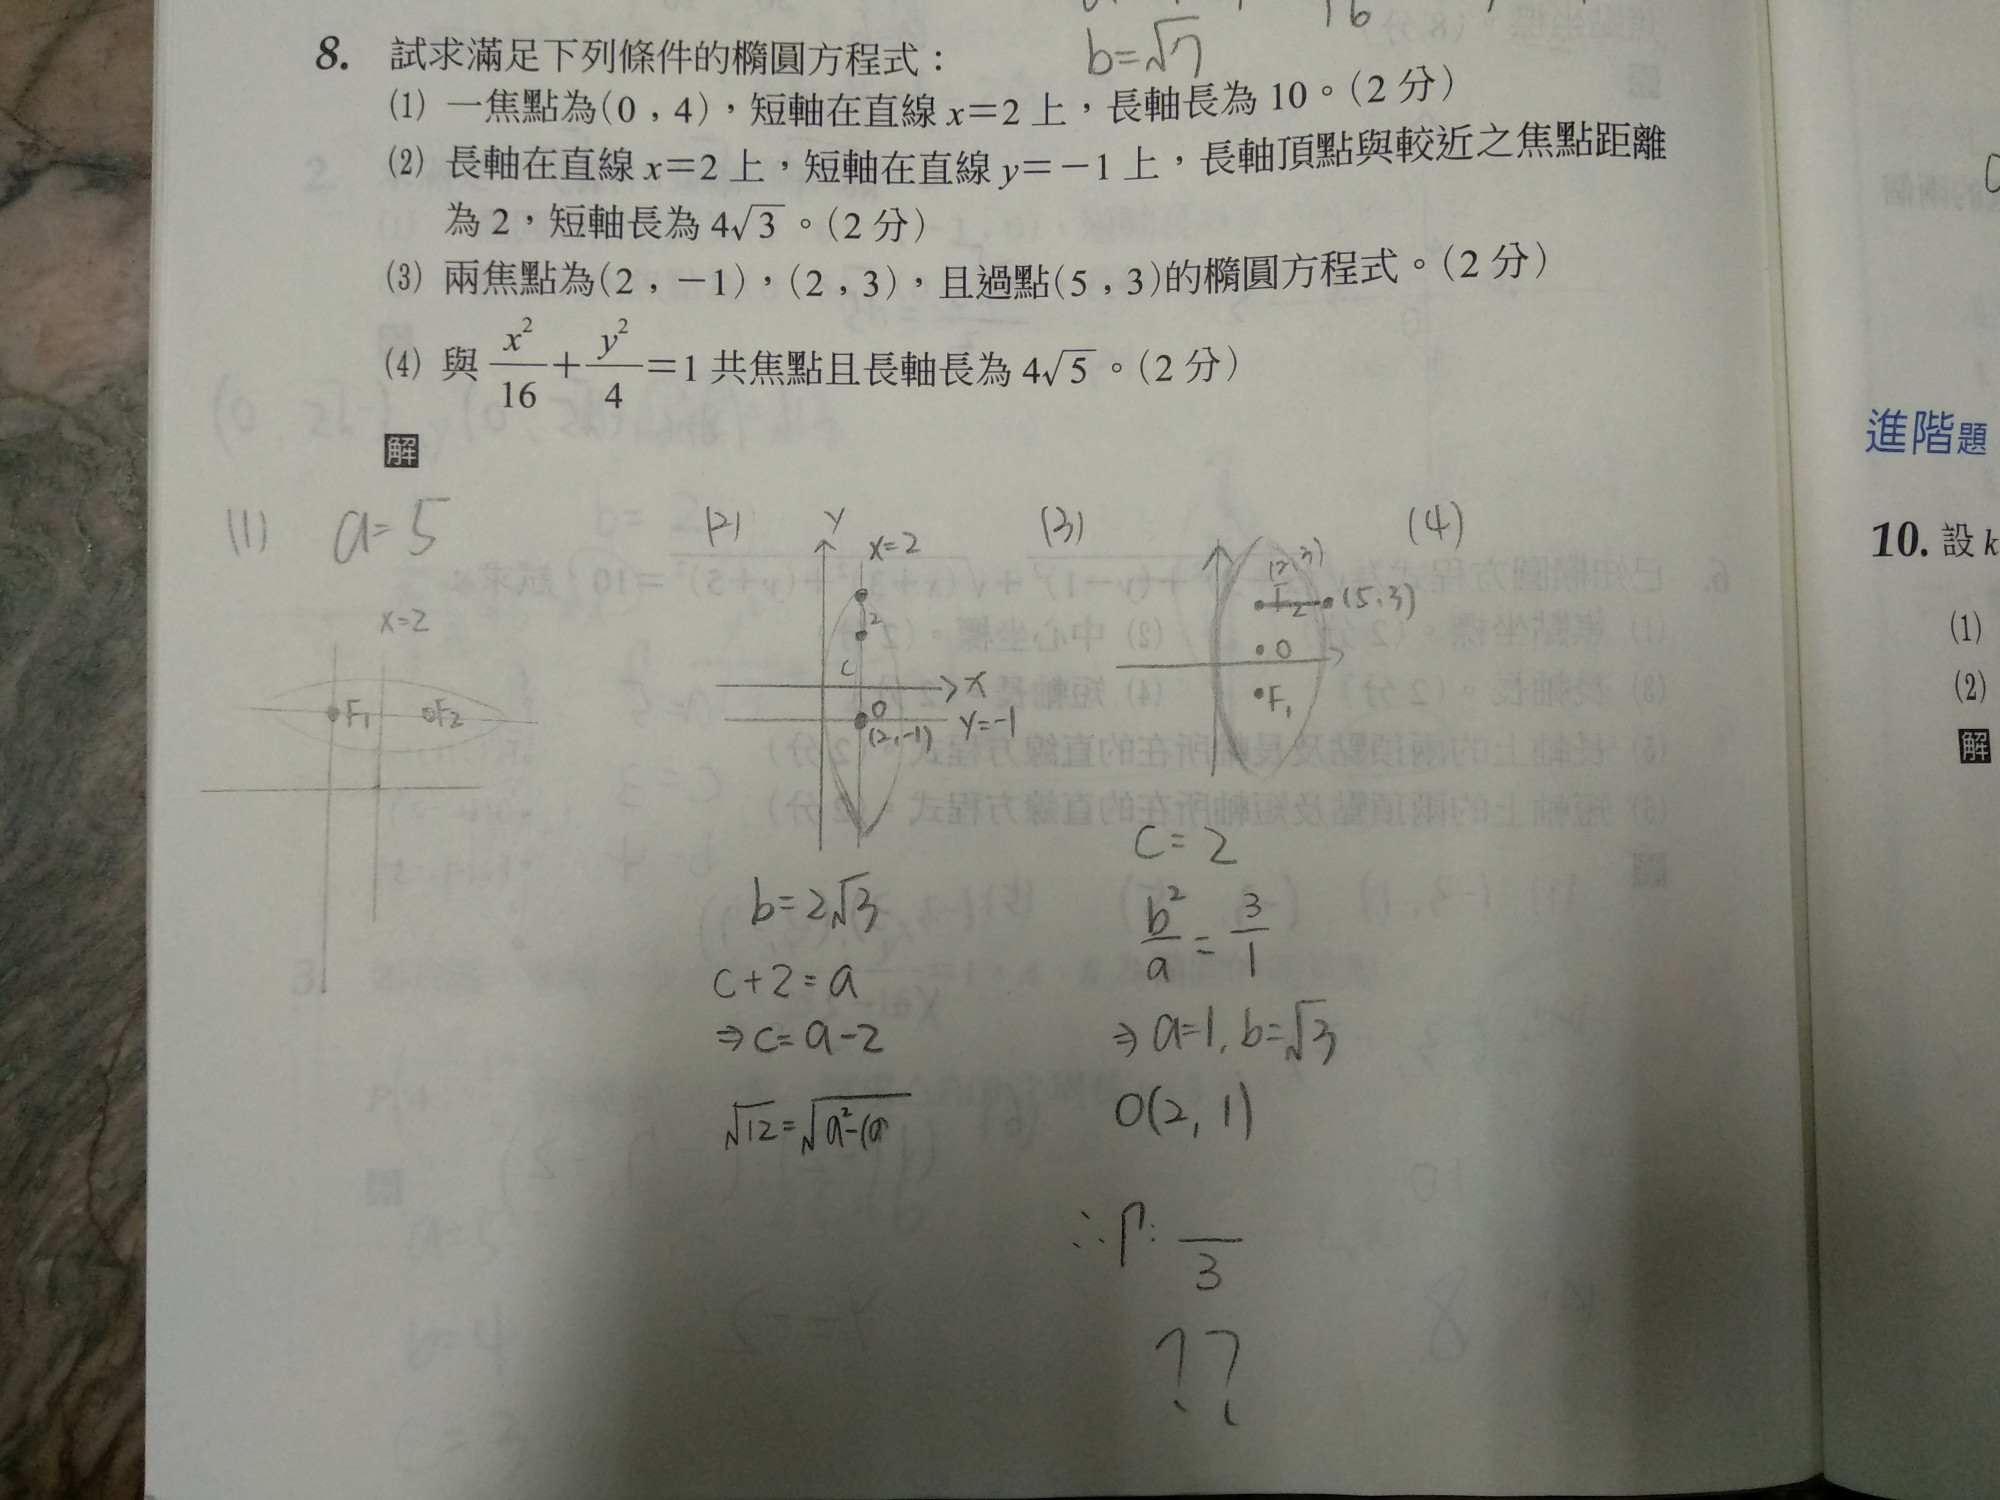 b=√7
8. 試求滿足下列條件的橢圓方程式：
(1) 一焦點為(0，4)，短軸在直線 x=2 上，長軸長為 10。(2 分)
(2) 長軸在直線 x=2 上，短軸在直線 y=－1 上，長軸頂點與較近之焦點距離
為 2，短軸長為 4√3。(2 分)
(3) 兩焦點為(2，－1)，(2，3)，且過點(5，3)的橢圓方程式。(2 分)
(4) 與 x²/16 + y²/4 =1 共焦點且長軸長為 4√5。(2 分)
解
(1) a=5
x=2
F₁ F₂
(2)
y
x=2
2
c
x
0
(2,-1)
y=-1
b=2√3
c+2=a
⇒c=a-2
√12=√a²-(a
(3)
(2,3)
F₂
(5,3)
0
F₁
c=2
b²/a = 3/1
⇒a=1, b=√3
O(2,1)
∴Γ: /3
??
(4)
進階題
10. 設 k
(1)
(2)
解